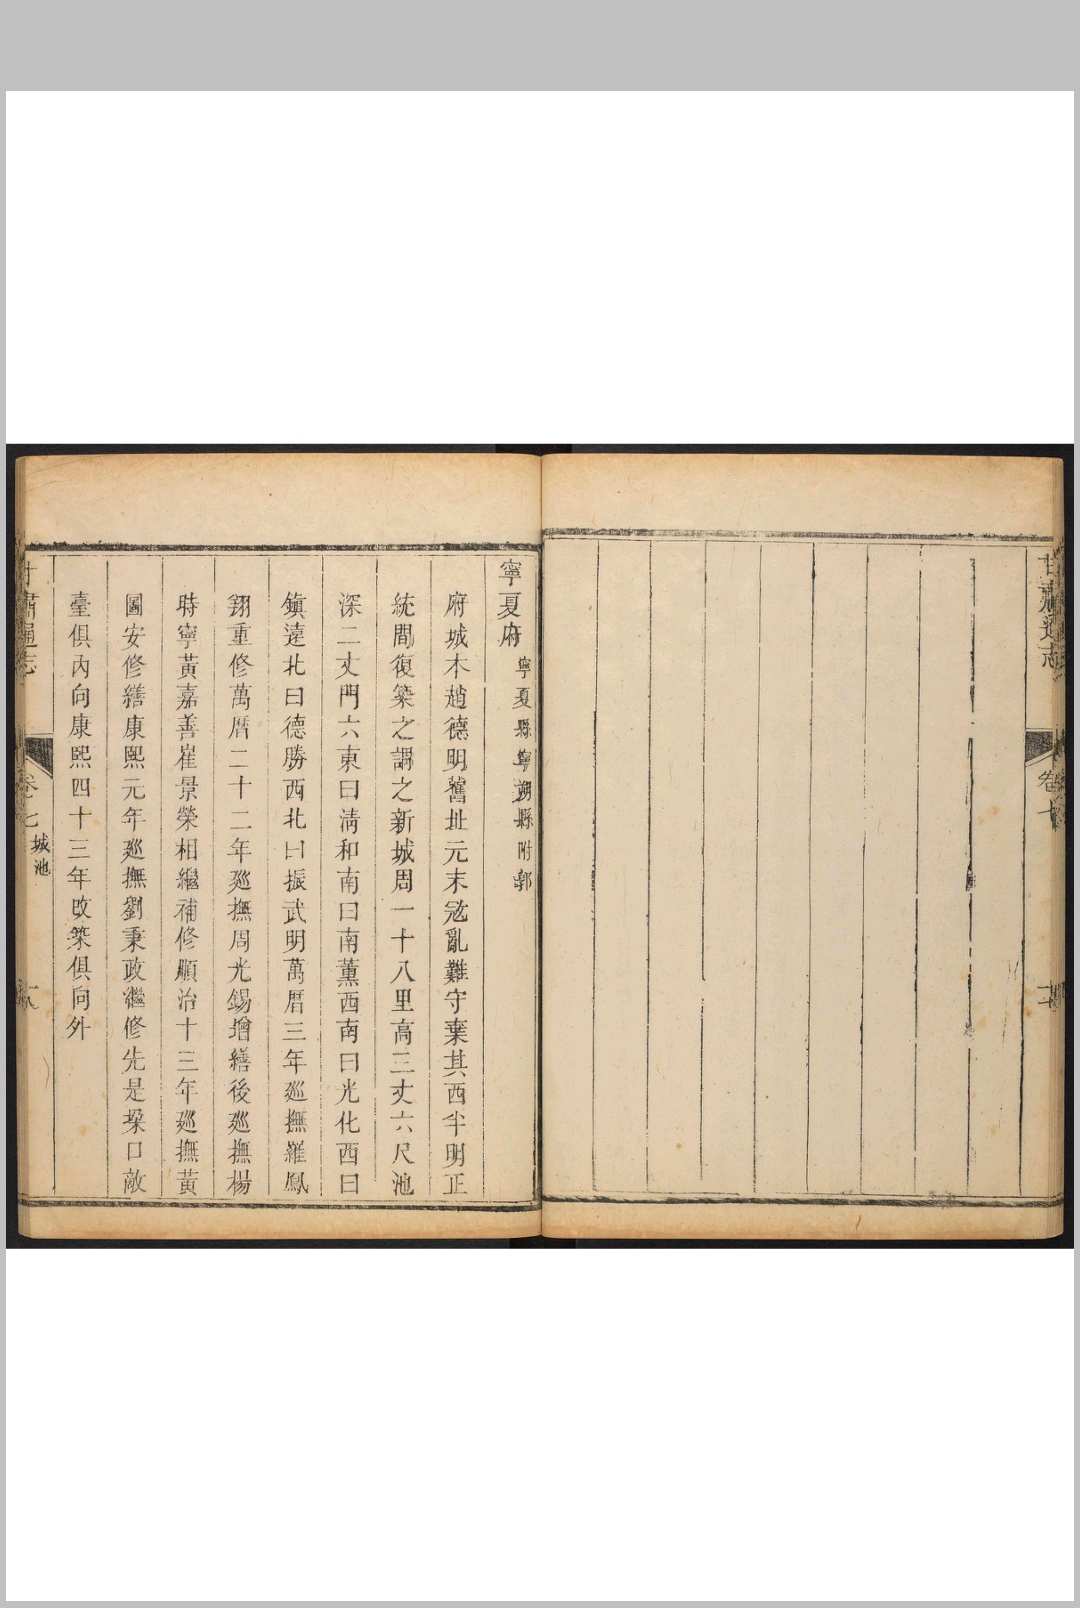 甘肅通志
卷七
寧夏府寧夏縣寧朔縣附郭
府城本趙德明舊址元末寇亂難守棄其西半明正
統間復築之謂之新城周一十八里高三丈六尺池
深二丈門六東曰淸和南曰南薰西南曰光化西曰
鎮遠北曰德勝西北曰振武明萬曆三年廵撫羅鳳
翱重修萬曆二十二年廵撫周光鎬增繕後廵撫楊
時寧黃嘉善崔景榮相繼補修順治十三年廵撫黃
圖安修繕康熙元年廵撫劉秉政繼修先是垜口敵
臺俱內向康熙四十三年改築俱向外
肅通志
卷七 城池